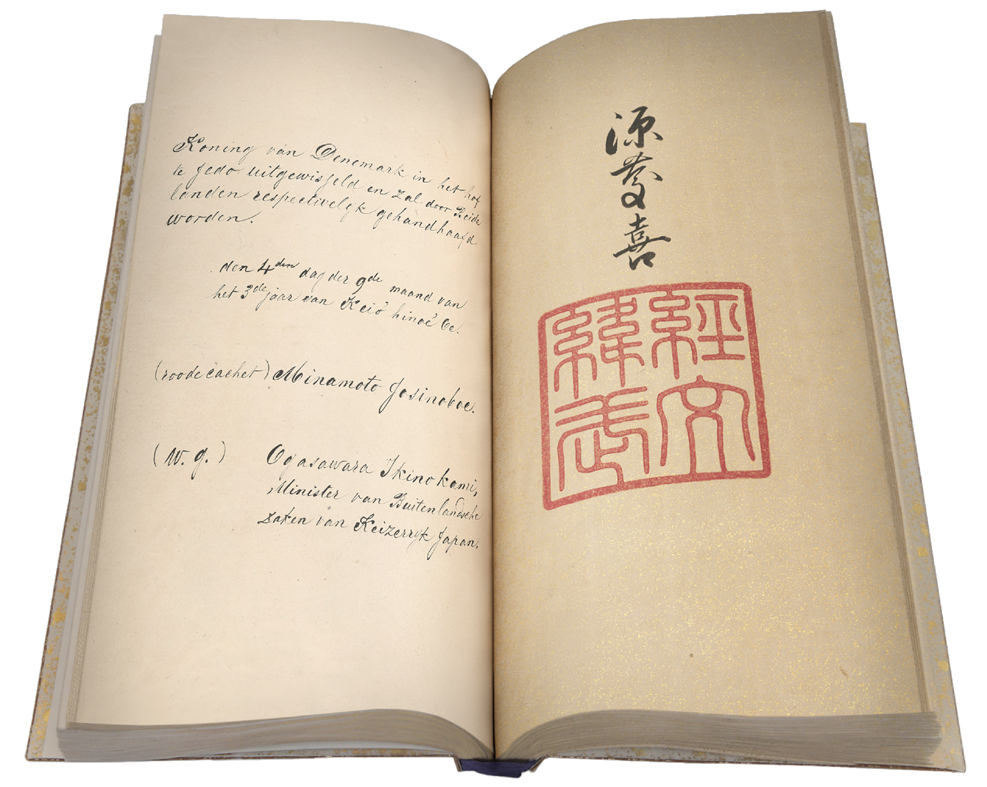 Koning van Denemark in het hof
te Jedo uitgewisseld en zal door beide
landen respectivelyk gehandhaafd
worden.
den 4den dag der 9de maand van
het 3de jaar van Keiô hinoe
(roode cachet) Minamoto Josinoboe.
(w. g.) Ogasawara Ikinokami,
Minister van Buitenlandsche
zaken van Keizerryk Japan.
源慶喜
經文
緯武